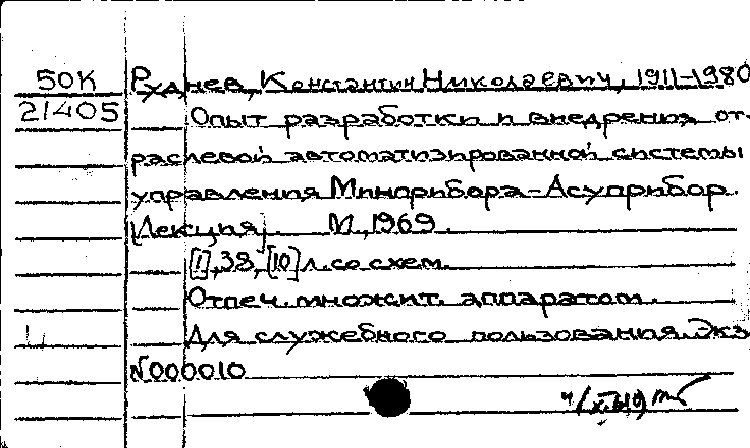 50К Руднев, Константин Николаевич, 1911-1980
21405 Опыт разработки и внедрения от-
раслевой автоматизированной системы
управления Минприбора-Асуприбор.
[Лекция]. М., 1969.
[1], 38, [10] л. со схем.
Отпеч. множит. аппаратом.
Для служебного пользования. Экз.
N000010